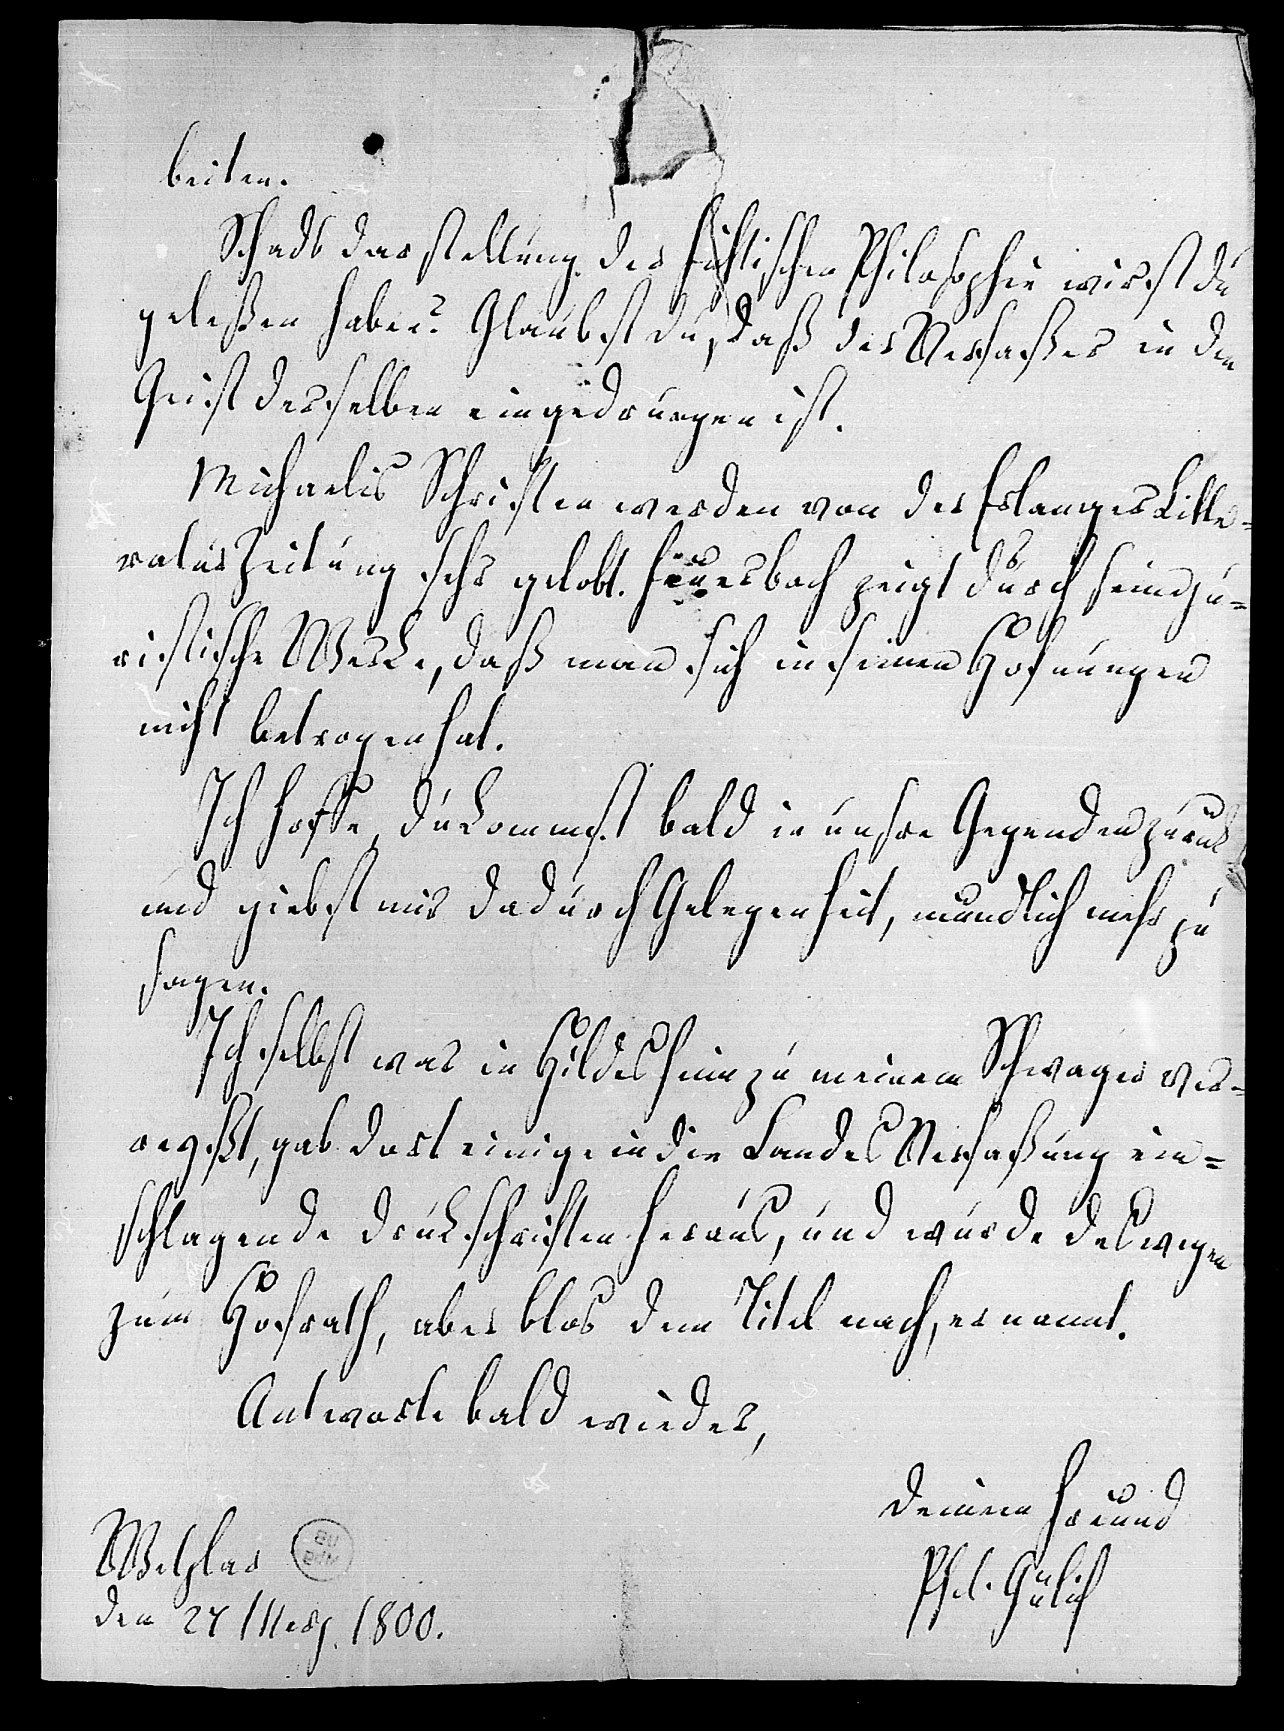 beiten.
Schads darstellung der fichtischen Philosophie wirst du
geleßen haben? Glaubst du, daß der Verfaßer in den
Geist derselben eingedrungen ist.
Michaelis Schriften werden von der Erlanger Litte=
raturzeitung sehr gelobt. Feuerbach zeigt durch seine ju=
ristische Werke, daß man sich in seinen Hofnungen
nicht betrogen hat.
Ich hoffe, du kommst bald in unsre Gegenden zurük
und giebst mir dadurch Gelegenheit, mundlich mehr zu
sagen.
Ich selbst war in Hildesheim zu meinem Schwager ver=
reyßt, gab dort einige in die Landes Verfaßung ein=
schlagende drukschriften heraus, und wurde deswegen
zum Hofrath, aber blos dem Titel nach, ernannt.
Antworte bald wieder,
deinem Freund
Phil. Gülich
Wetzlar
den 27 Merz. 1800.